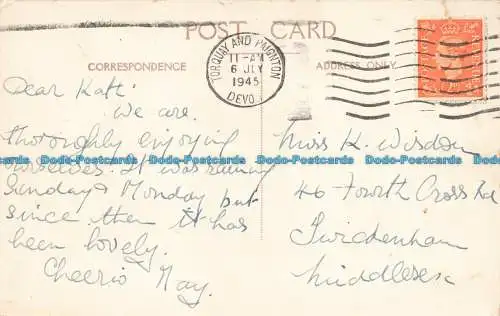 POST CARD
CORRESPONDENCE
ADDRESS ONLY
TORQUAY AND PAIGNTON
11-AM
6 JLY
1945
DEVON
Dear Kath
We are
thoroughly enjoying
ourselves. It was rainy
Sunday & Monday but
since then it has
been lovely.
Cheerio May.
Miss K. Wisdom
46 Fourth Cross Rd
Twickenham
Middlesex
Dodo-Postcards.com Dodo-Postcards.com Dodo-Postcards.com Dodo-Postcards.com Dodo-Postcards.com